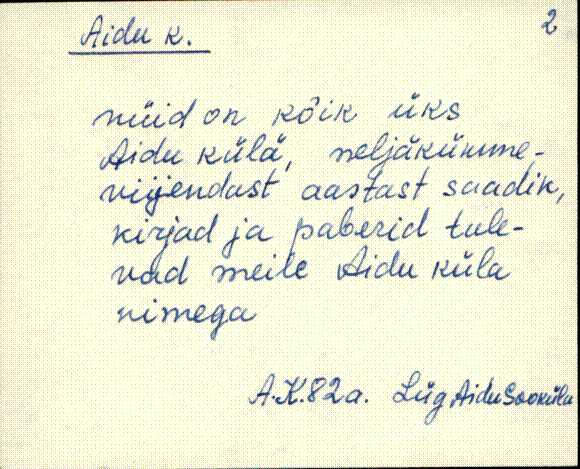 Aidu k.
2
nüid on kõik üks
Aidu külä, neljäkümme-
viijendast aastast saadik,
kirjad ja paberid tule-
vad meile Aidu küla
nimega
A.K.82a. Lüg Aidu Sooküla